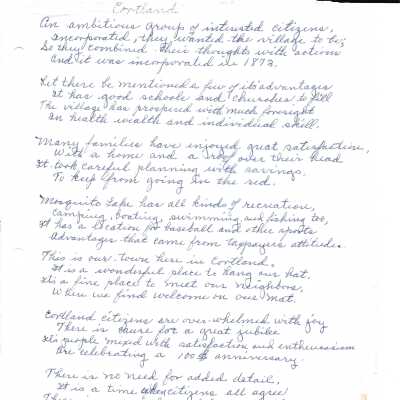 Cortland
An ambitious group of interested citizens,
Incorporated, they wanted the village to be;
So they combined their thoughts with actions
And it was incorporated in 1872.
Let there be mentioned a few of its advantages
It has good schools and churches to fill
The village has prospered with much foresight
In health wealth and individual skill.
Many families have enjoyed great satisfaction,
With a home and a roof over their head
It took careful planning with savings.
To keep from going in the red.
Mosquito Lake has all kinds of recreation,
Camping, boating, swimming, and fishing too,
It has a location for baseball and other sports
Advantages that came from taxpayers attitude.
This is our town here in Cortland.
It is a wonderful place to hang our hat.
Its a fine place to meet our neighbors.
Where we find welcome on our mat.
Cortland citizens are over-whelmed with joy
There is cause for a great jubilee
Its people mixed with satisfaction and enthusiasm
Are celebrating a 100th anniversary.
There is no need for added detail,
It is a time when citizens all agree